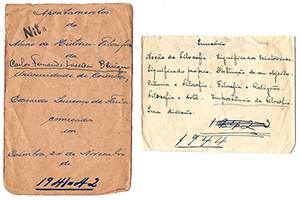 Apontamentos
do
Curso de História Filosofia
Carlos Fernando Lacerda
Universidade de Coimbra
Eduardo Lourenço de Faria
começados
em
Coimbra, 20 de Novembro
de
1941-42
Sumário
Noção de Filosofia. Significados históricos.
Significado próprio. Distinção de um objecto.
Ciência e Filosofia. Filosofia e Religião.
Filosofia e Arte. Importância da filosofia.
Sua divisão.
1942
1944